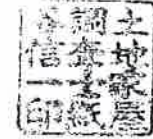 土地家屋
調査士
信一印